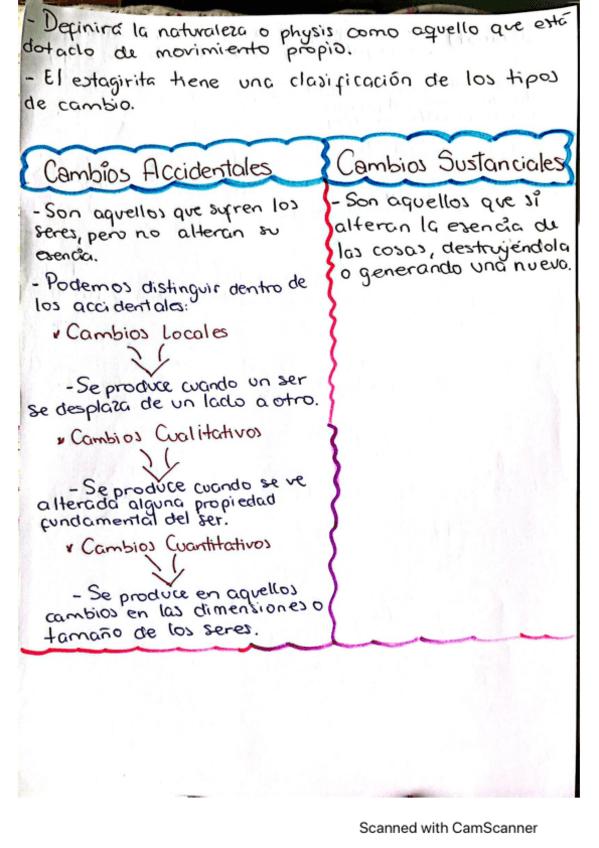 - Definirá la naturaleza o physis como aquello que está
dotado de movimiento propio.
- El estagirita tiene una clasificación de los tipos
de cambio.
Cambios Accidentales
- Son aquellos que sufren los
seres, pero no alteran su
esencia.
- Podemos distinguir dentro de
los accidentales:
Cambios Locales
- Se produce cuando un ser
se desplaza de un lado a otro.
Cambios Cualitativos
- Se produce cuando se ve
alterada alguna propiedad
fundamental del ser.
Cambios Cuantitativos
- Se produce en aquellos
cambios en las dimensiones o
tamaño de los seres.
Cambios Sustanciales
- Son aquellos que sí
alteran la esencia de
las cosas, destruyéndola
o generando una nueva.
Scanned with CamScanner